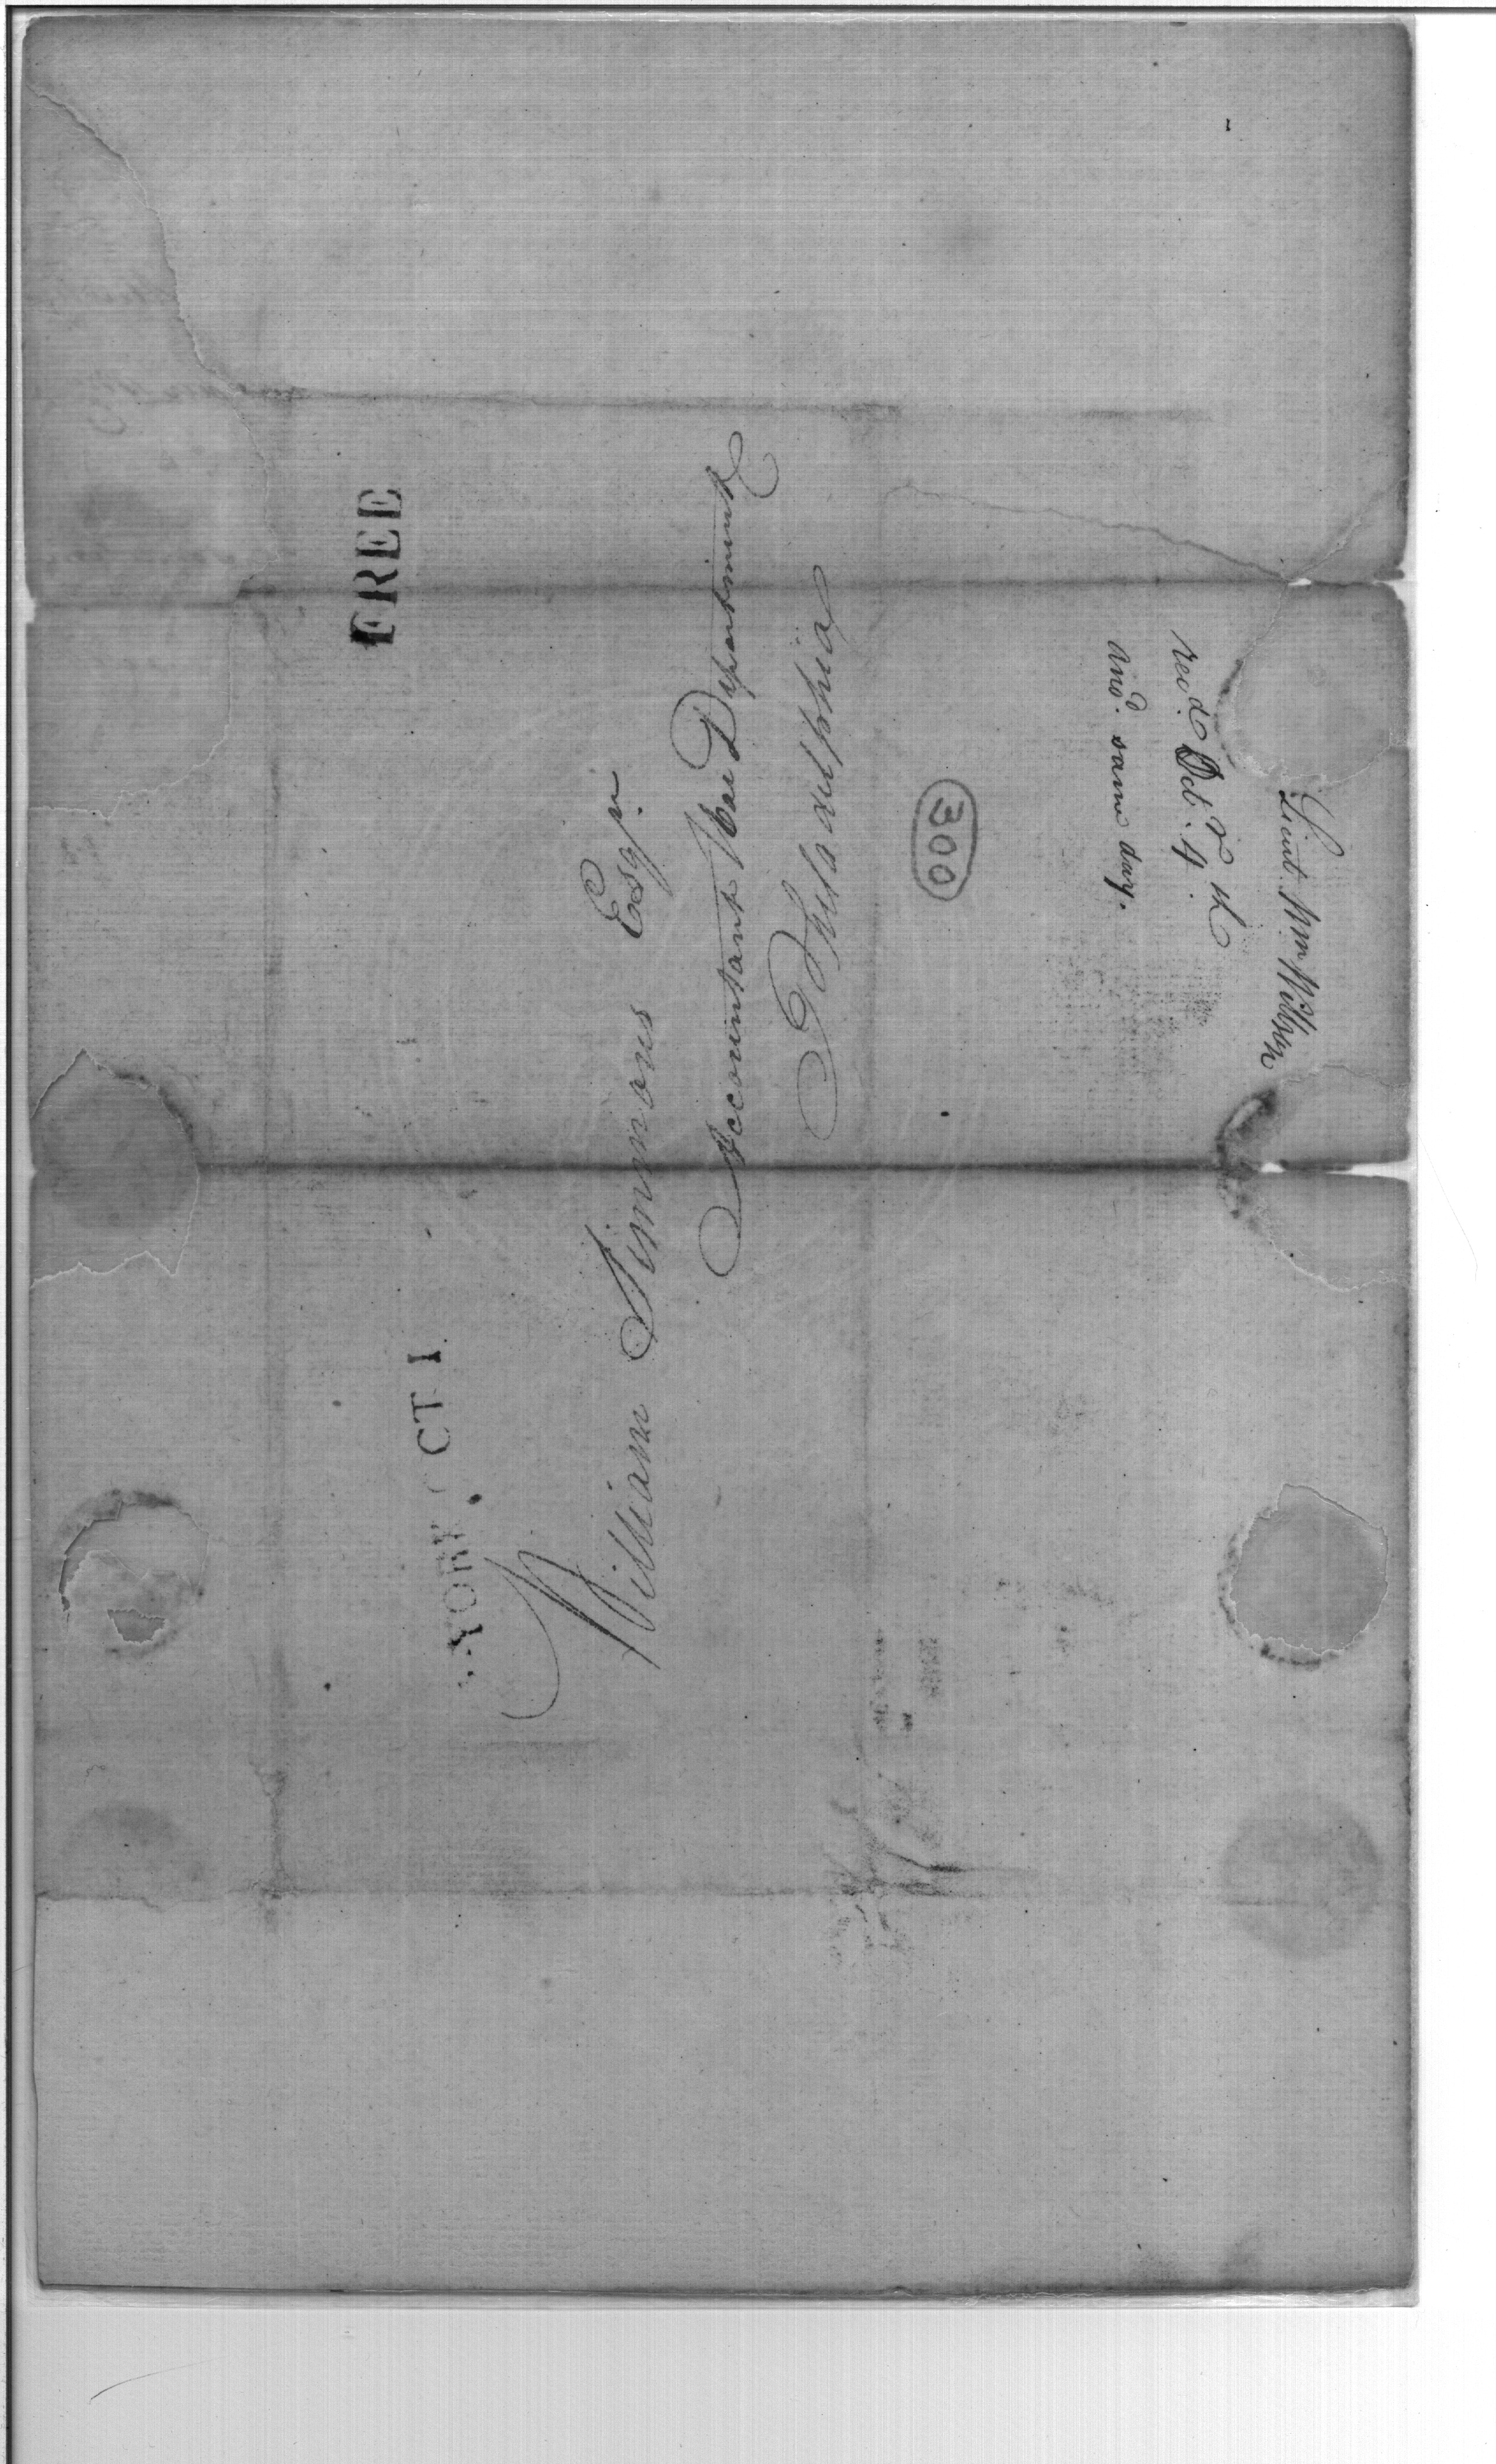 FREE
YORK CT 1
William Simmons Esqr.
Accountant War Department
Philadelphia
300
Lieut Wm Willson
recd. Octr. 4th
and. same day.